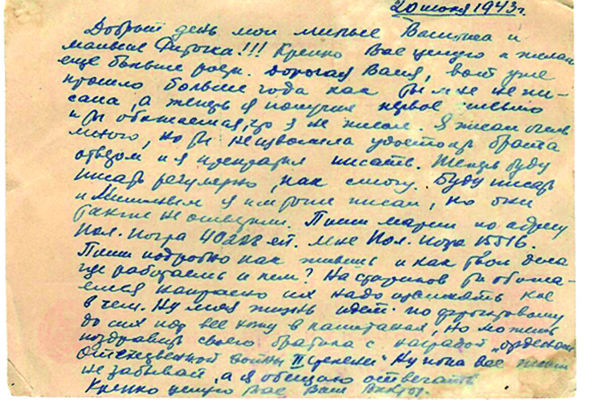 20 июня 1943 г
Добрый день мои милые Васитка и
маленькая Фирочка!!! Крепко Вас целую и желаю
еще больше роси. Дорогая Вася, вот уже
прошло больше года как ты мне не пи-
сала, а теперь я получил первое письмо
и ты обижаешься, что я не писал. Я писал очень
много, но ты не удостоила брата
ответом и я прекратил писать. Теперь буду
писать регулярно, как смогу. Буду писать
и я им тоже писал, но они
также не ответили. Пиши марии по адресу
Пол. Почта 40228 ей. мне Пол. Почта 15516.
Пиши подробно как живешь и как твои дела
где работаешь и кем? На стариков ты обижа-
ешься напрасно их надо уважать кое
в чем. Ну моя жизнь идет по фронтовому
до сих пор все хожу в капитанах. Но можешь
поздравить своего братика с наградой "орденом
Отечественной войны II степени" Ну пока все пиши
не забывай, а я обещаю отвечать
Крепко целую Вас Ваш Виктор.